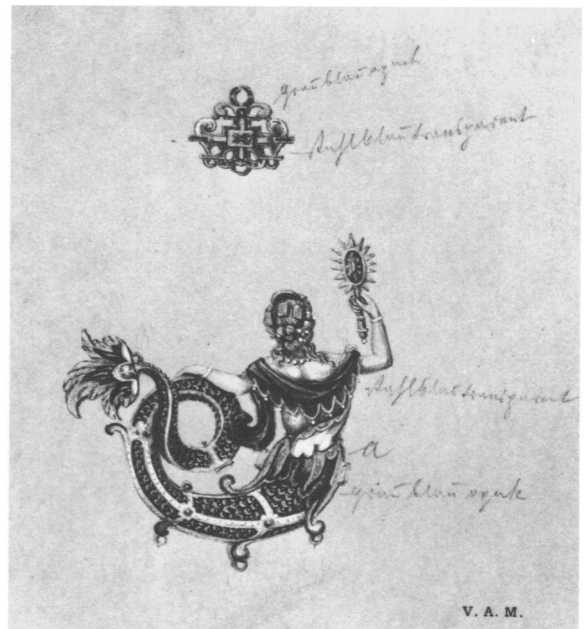 graublau opak
stahlblau transparent
stahlblau transparent
a
grau blau opak
V. A. M.